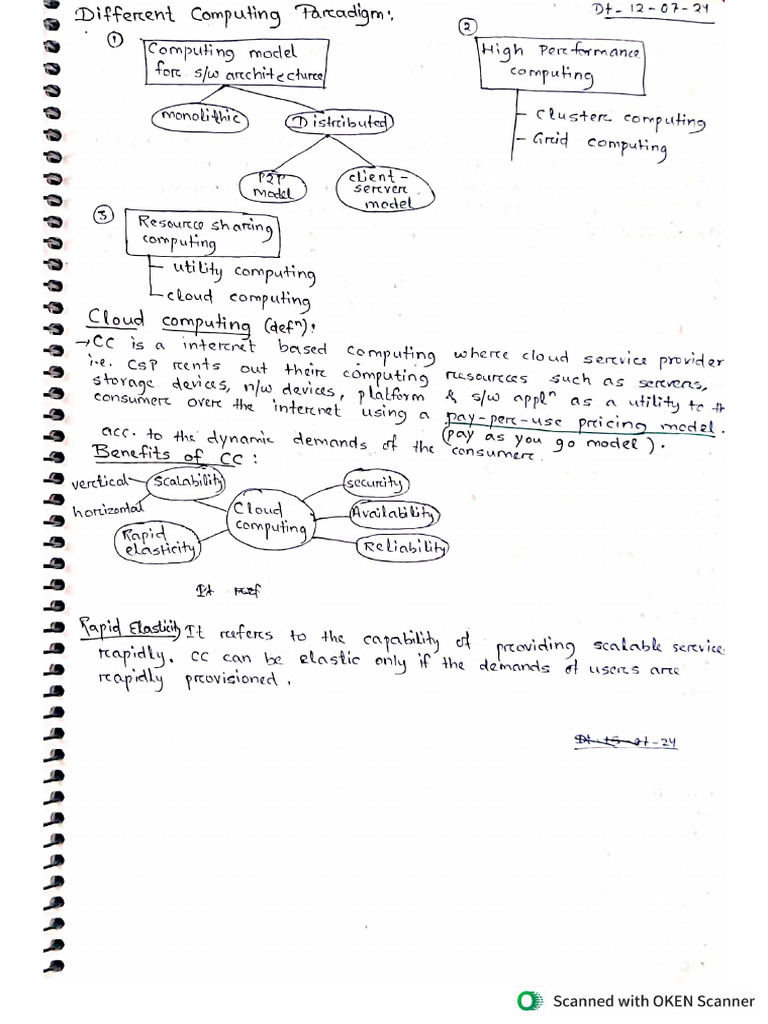 Different Computing Paradigm:
Dt- 12-07-24
①
Computing model
for s/w architecture
monolithic
Distributed
P2P
model
client-
server
model
②
High Performance
computing
Cluster computing
Grid computing
③
Resource sharing
computing
utility computing
cloud computing
Cloud computing (defⁿ):
→CC is a internet based computing where cloud service provider
i.e. CSP rents out their computing resources such as servers,
storage devices, n/w devices, platform & s/w applⁿ as a utility to th
consumer over the internet using a pay-per-use pricing model.
(pay as you go model).
acc. to the dynamic demands of the consumer.
Benefits of CC:
vertical
horizontal
Scalability
Rapid
elasticity
Cloud
computing
security
Availability
Reliability
It ref
Rapid Elasticity It refers to the capability of providing scalable service
rapidly. CC can be elastic only if the demands of users are
rapidly provisioned.
Dt-15-07-24
Scanned with OKEN Scanner